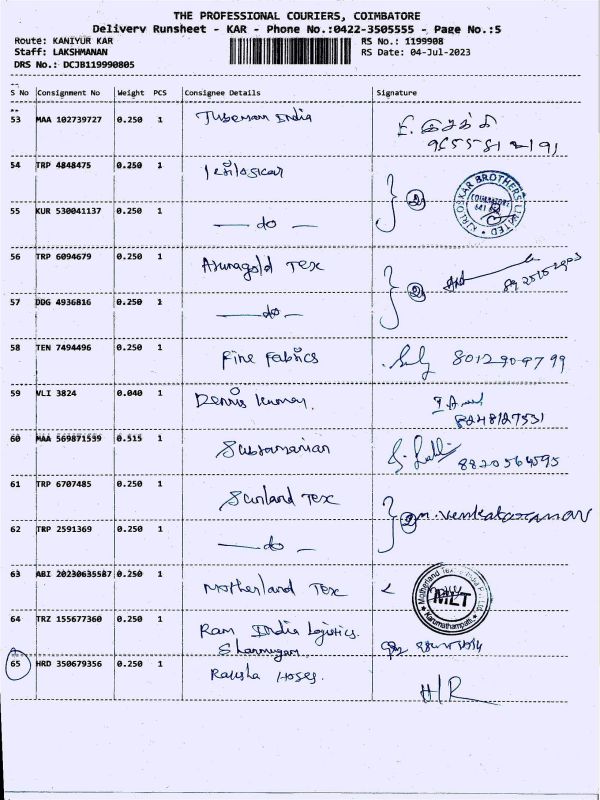 THE PROFESSIONAL COURIERS, COIMBATORE
Delivery Runsheet - KAR - Phone No.:0422-3505555 - Page No.:5
Route: KANIYUR KAR RS No.: 1199908
Staff: LAKSHMANAN RS Date: 04-Jul-2023
DRS No.: DCJB119990805
S No Consignment No Weight PCS Consignee Details Signature
53 MAA 102739727 0.250 1 India
54 TRP 4848475 0.250 1
KIRLOSKAR BROTHERS LIMITED
COIMBATORE
55 KUR 530041137 0.250 1 — do —
56 TRP 6094679 0.250 1 Tex
57 DDG 4936816 0.250 1 — do —
58 TEN 7494496 0.250 1 Fine Fabrics
59 VLI 3824 0.040 1 Dennis Kumar.
8248127531
60 MAA 569871539 0.515 1 Subramanian
8820564595
61 TRP 6707485 0.250 1 Sunland Tex
62 TRP 2591369 0.250 1 — do —
63 ABI 20230635587 0.250 1 Motherland Tex
MLT
Karumathampatti
64 TRZ 155677360 0.250 1 Ram India Logistics.
Shanmugam
65 HRD 350679356 0.250 1 Raksha Hoses. H/R